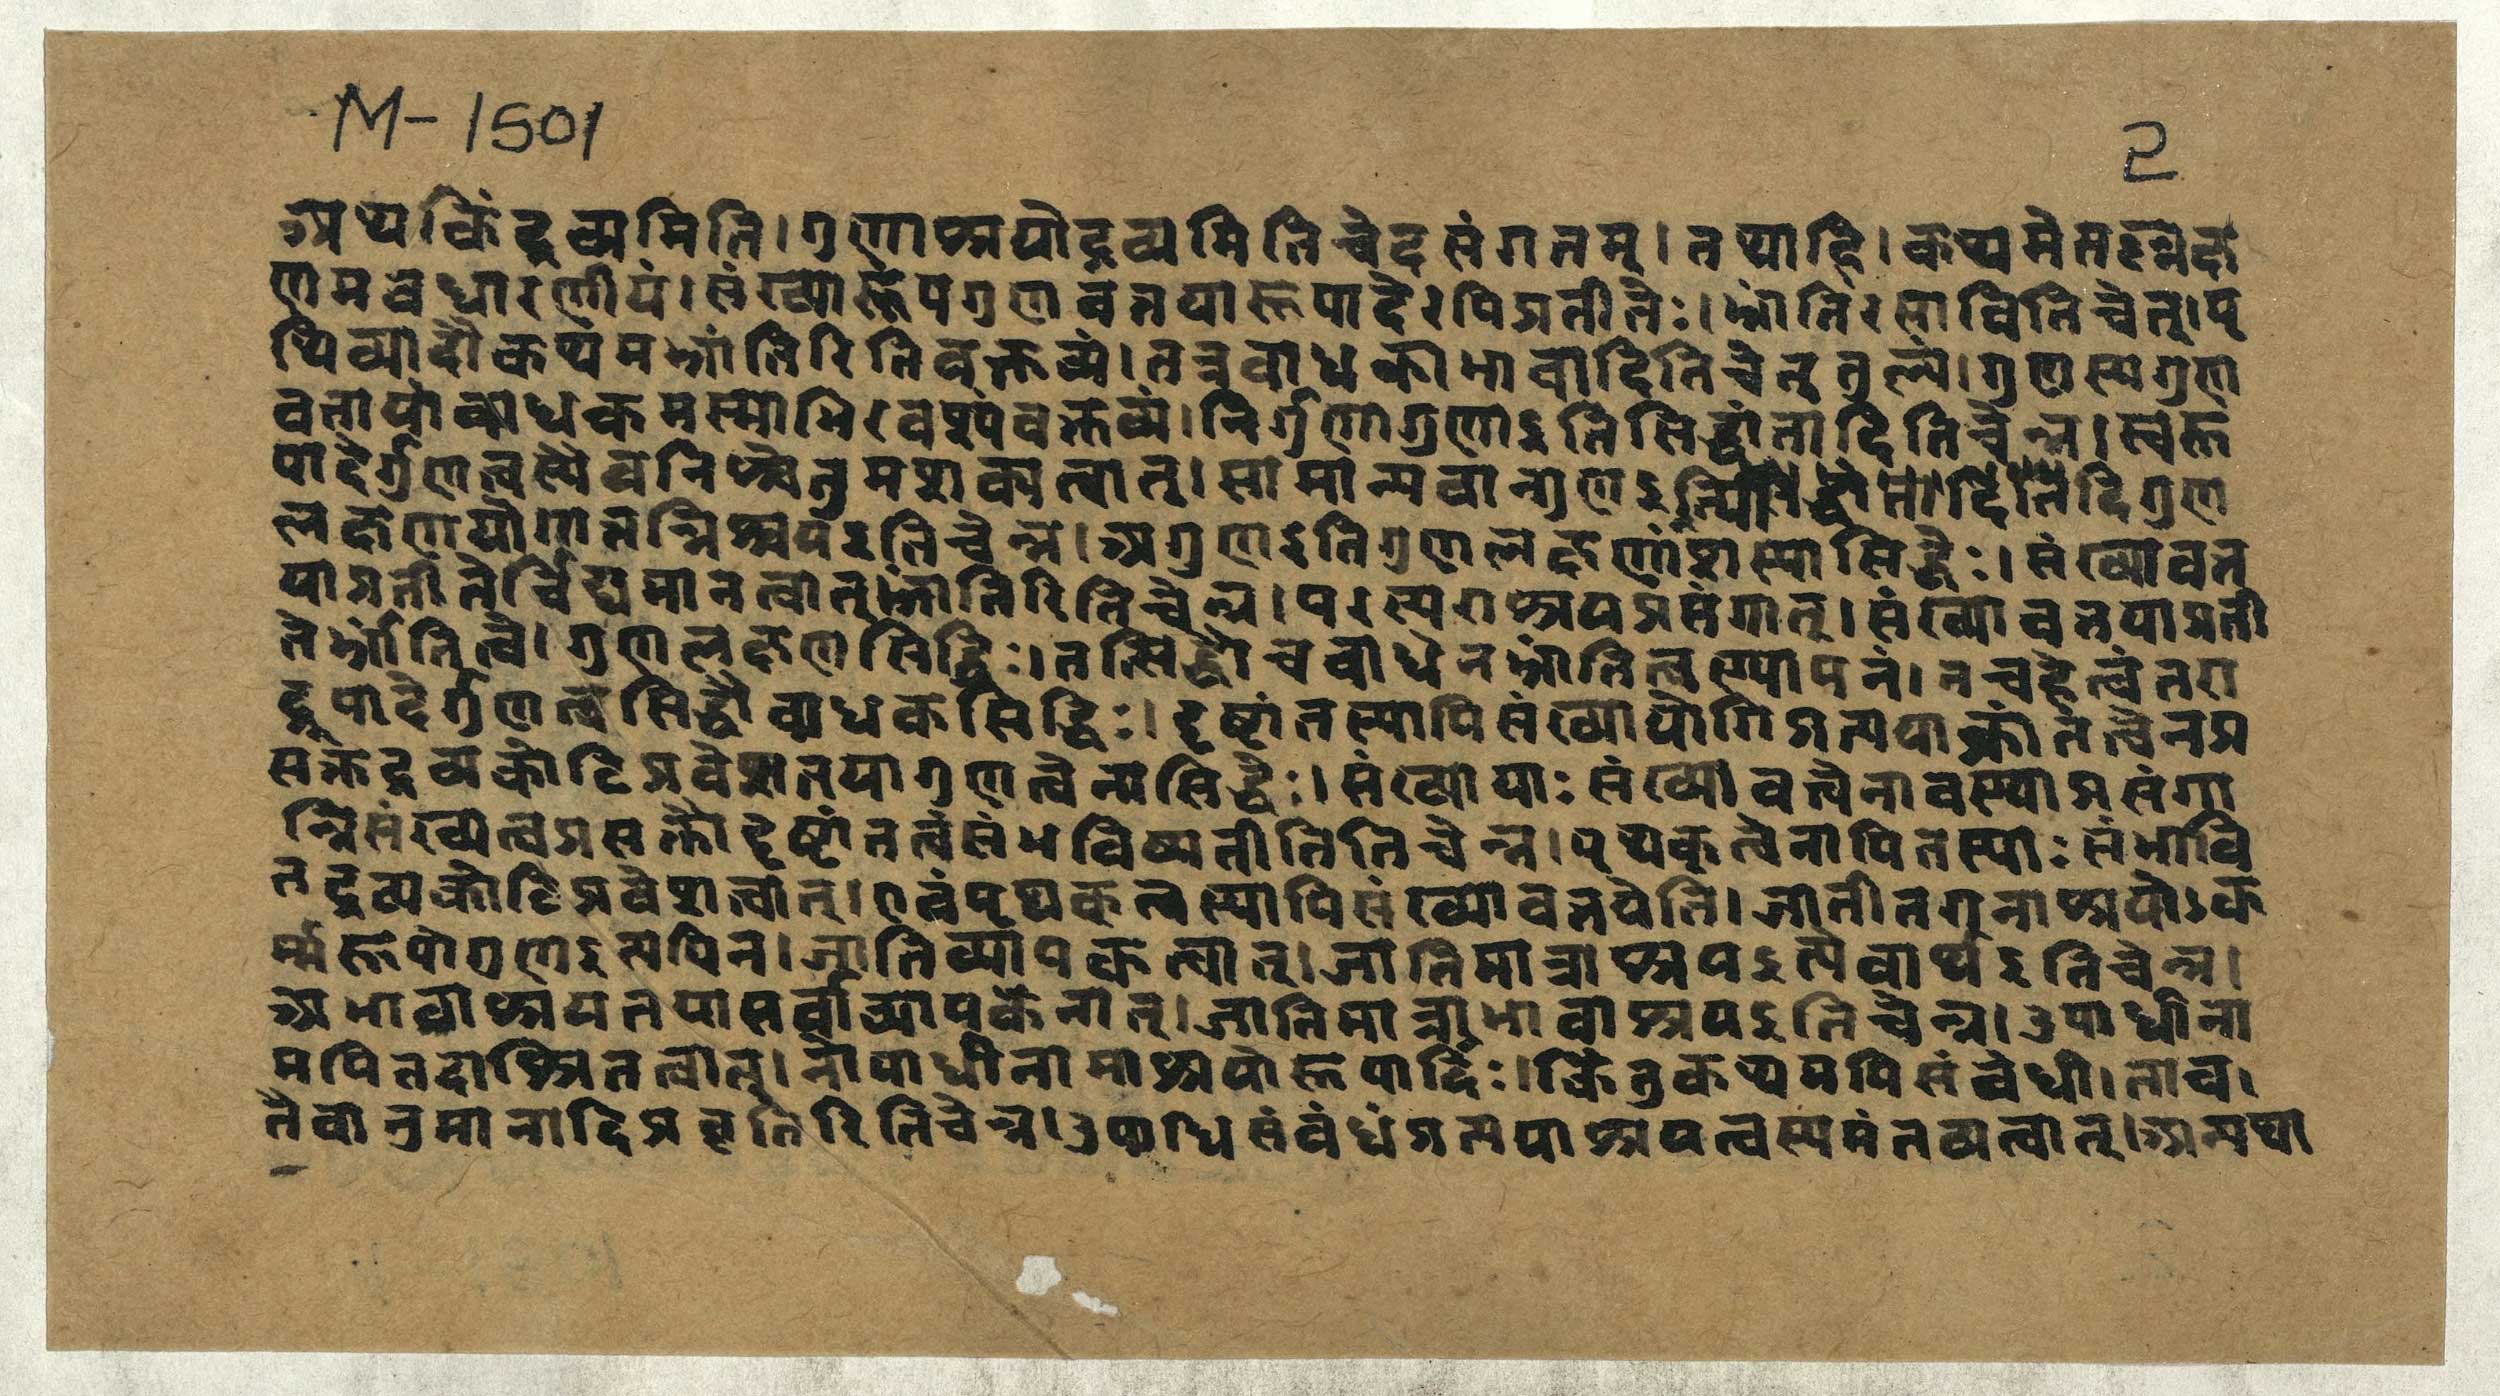 M-1501
2
अथ किं द्रव्यमिति। गुणाश्रयो द्रव्यमिति चेदसंगतम्। तथाहि। कथमेतल्लक्ष
णमवधारणीयं। संख्यारूपगुणवत्तया रूपादेरपि प्रतीतेः। भ्रांतिरसाविति चेत्। पृ
थिव्यादौ कथमभ्रांतिरिति वक्तव्यं। तत्र बाधकाभावादिति चेत् तुल्यं। गुणस्य गुण
वत्तायां बाधकमस्माभिरवश्यं वक्तव्यं। निर्गुणा गुणा इति सिद्धांतादिति चेन्न। स्वरू
पादेर्गुणत्वस्यैव निश्चेतुमशक्यत्वात्। सामान्यवान्गुण इ दि गुण
लक्षणयोगात्तन्निश्चय इति चेन्न। अगुण इति गुणलक्षणांशस्यासिद्धेः। संख्यावत्त
या प्रतीतेर्विद्यमानत्वात् भ्रांतिरिति चेन्न। परस्पराश्रयप्रसंगात्। संख्यावत्तया प्रती
तेर्भ्रांतित्वे। गुणलक्षणसिद्धिः। तत्सिद्धौ च बाधेन भ्रांतित्वस्थापनं। न च हेत्वंतरा
द्रूपादेर्गुणत्वसिद्धौ बाधकसिद्धिः। दृष्टांतस्यापि संख्यायोगिप्रत्ययाक्रांतत्वेन प्र
सक्तद्रव्यकोटिप्रवेशतया गुणत्वेनासिद्धेः। संख्यायाः संख्यावत्त्वेनावस्थाप्रसंगा
न्निसंख्येत्वप्रसक्तौ दृष्टांतत्वं संभविष्यतीतिति चेन्न। पृथक्त्वेनापि तस्याः संभावि
तद्रव्यकोटिप्रवेशत्वात्। एवं पृथकत्वस्यापि संख्यावत्तयेति। जातीतगुनाश्रयोऽक
र्म्मरूपो गुण इत्यपि न। जातिव्यापकत्वात्। जातिमात्राश्रय इत्येवार्थ इति चेन्न।
अभावाश्रयतया सर्वाव्यापकेनात्। जातिमात्राभावाश्रय इति चेन्न। उपाधीना
मपि तदाश्रितत्वात्। नोपाधीनामाश्रयो रूपादिः। किंतु कथमपि संबंधी। ताव।
तैवानुमानादिप्रवृत्तिरिति चेन्न। उपाधिसंबंधं प्रत्ययाश्रयत्वस्य मंतव्यत्वात्। अन्यथा